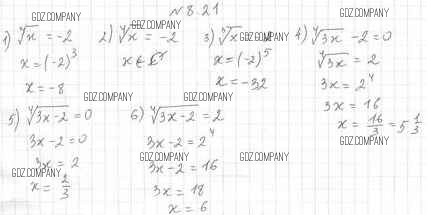 №8.21
1) ∛x = -2
x = (-2)³
x = -8
2) ⁴√x = -2
x ∈
3) ⁵√x = -2
x = (-2)⁵
x = -32
4) ⁴√3x - 2 = 0
⁴√3x = 2
3x = 2⁴
3x = 16
x = 16/3 = 5 1/3
5) ⁴√3x-2 = 0
3x - 2 = 0
3x = 2
x = 2/3
6) ⁴√3x-2 = 2
3x - 2 = 2⁴
3x - 2 = 16
3x = 18
x = 6
GDZ.COMPANY
GDZ.COMPANY
GDZ.COMPANY
GDZ.COMPANY
GDZ.COMPANY
GDZ.COMPANY
GDZ.COMPANY
GDZ.COMPANY
GDZ.COMPANY
GDZ.COMPANY